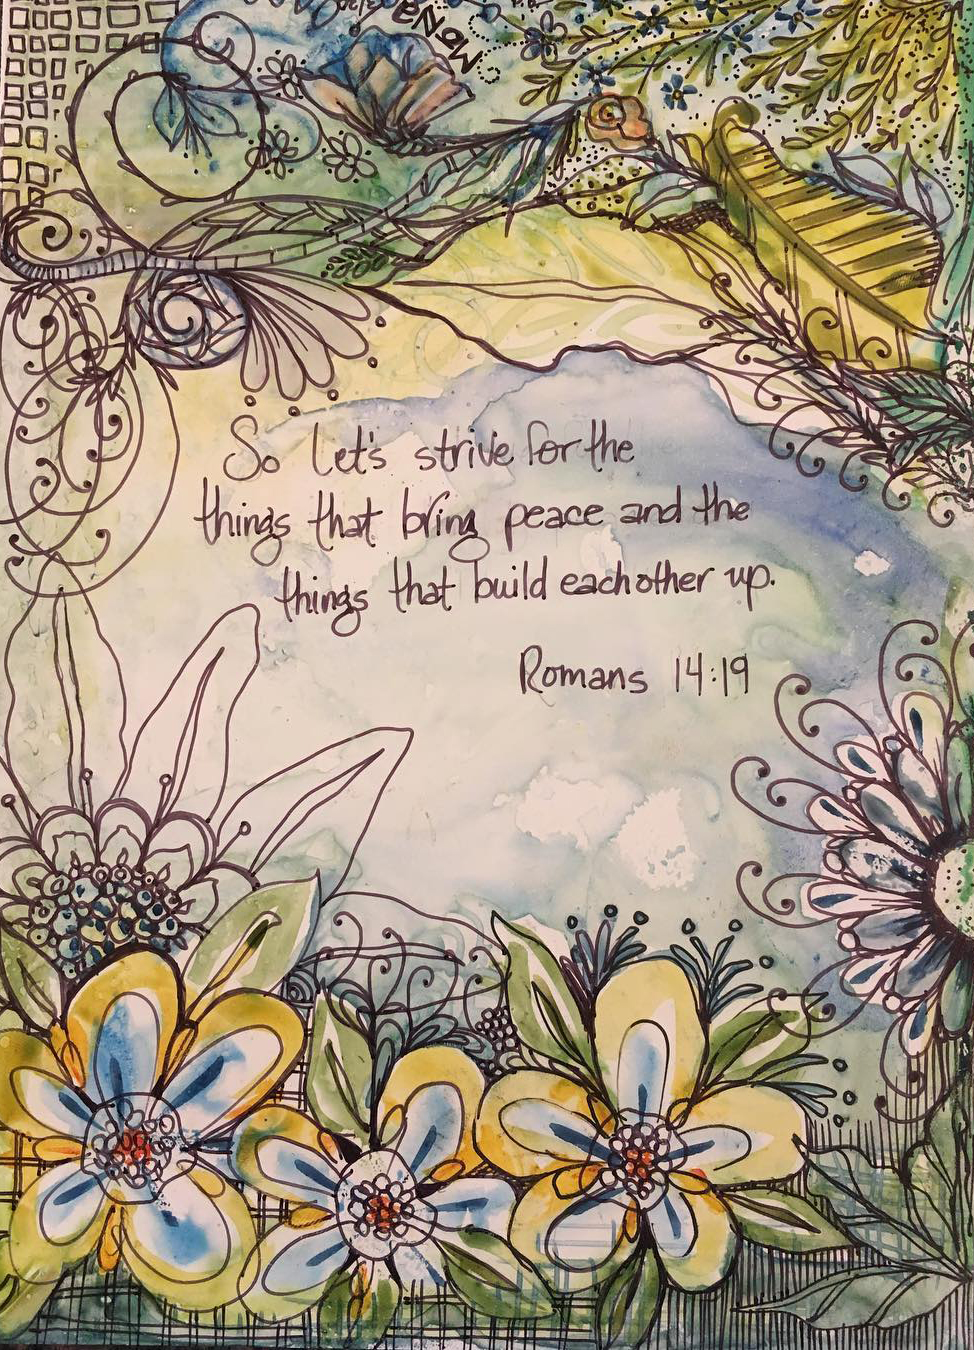 ENOW
So let's strive for the
things that bring peace and the
things that build each other up.
Romans 14:19